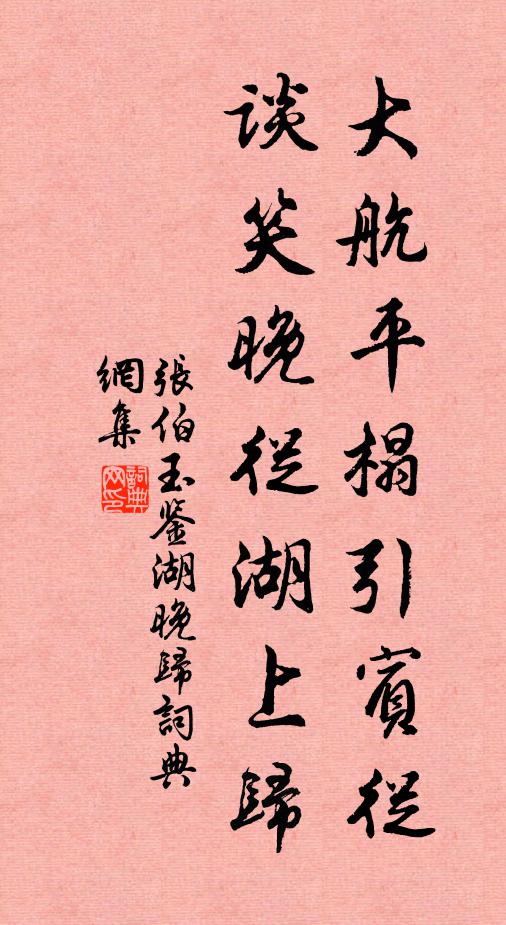 大航平榻引賓從
談笑晚從湖上歸
張伯玉鉴湖晚歸詞典
網集
詞典網印